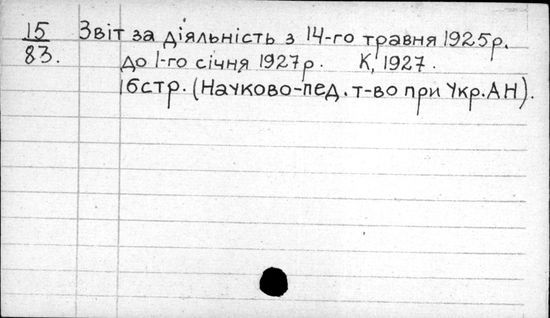 15 Звіт за діяльність з 14-го травня 1925р.
83. до 1-го січня 1927р. К, 1927.
16стр. (Науково-пед. т-во при Укр.АН).